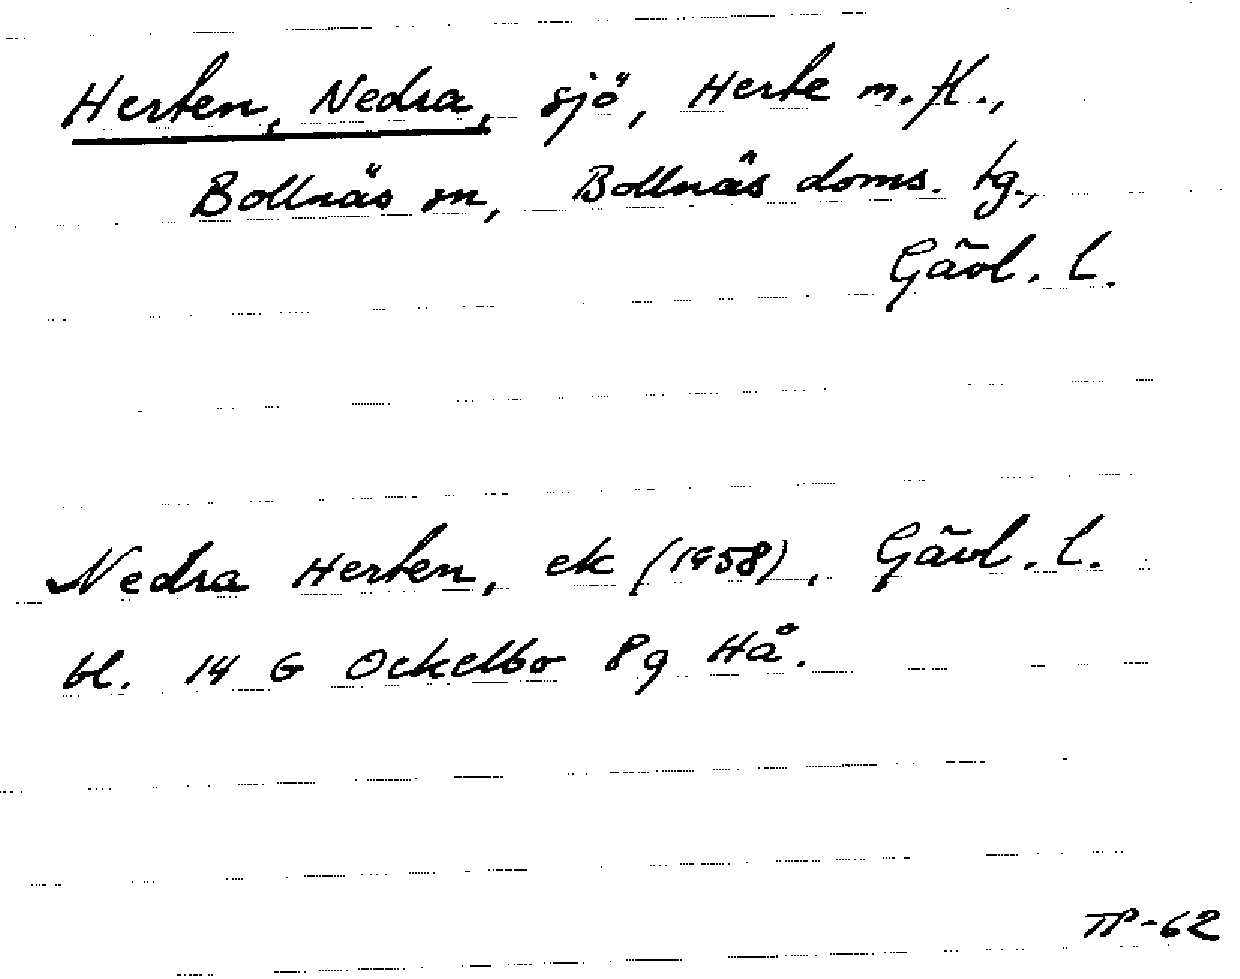 Herten, Nedra, sjö, Herte m. fl.,
Bollnäs sn, Bollnäs doms. tg.,
Gävl. l.
Nedra Herten, ek (1958), Gävl. l.
bl. 14 G Ockelbo 8g Hå.
TP-62